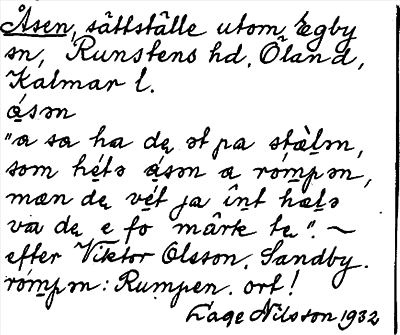 Åsen, sättställe utom Egby
sn, Runstens hd, Öland,
Kalmar l.
ą́sən
"a sa ha dę ət pa stàl̠ən,
som hé̠tə ą́sən a ró̠mpən,
mæn dę vé̠t ja înt hæl̠ə
va dę e fo mârk te̠". ~
efter Viktor Olsson. Sandby.
ró̠mpən: Rumpen. ort!
Lage Nilsson 1932